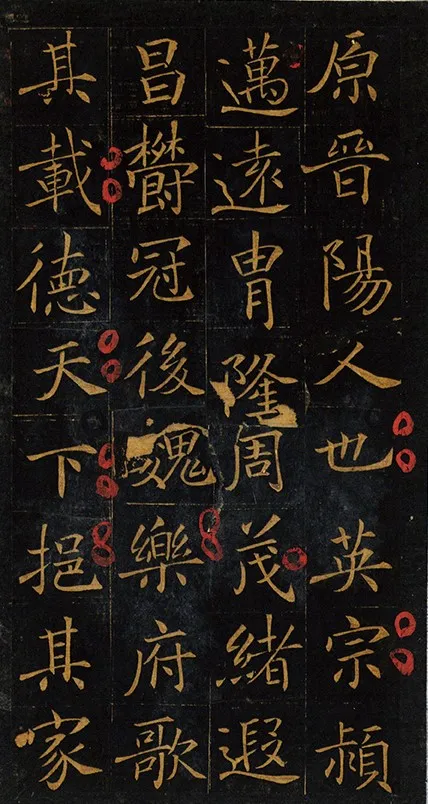 原晋陽人也英宗頴
邁遠冑隆周茂緒遐
昌欝冠後魏樂府歌
其載德天下挹其家